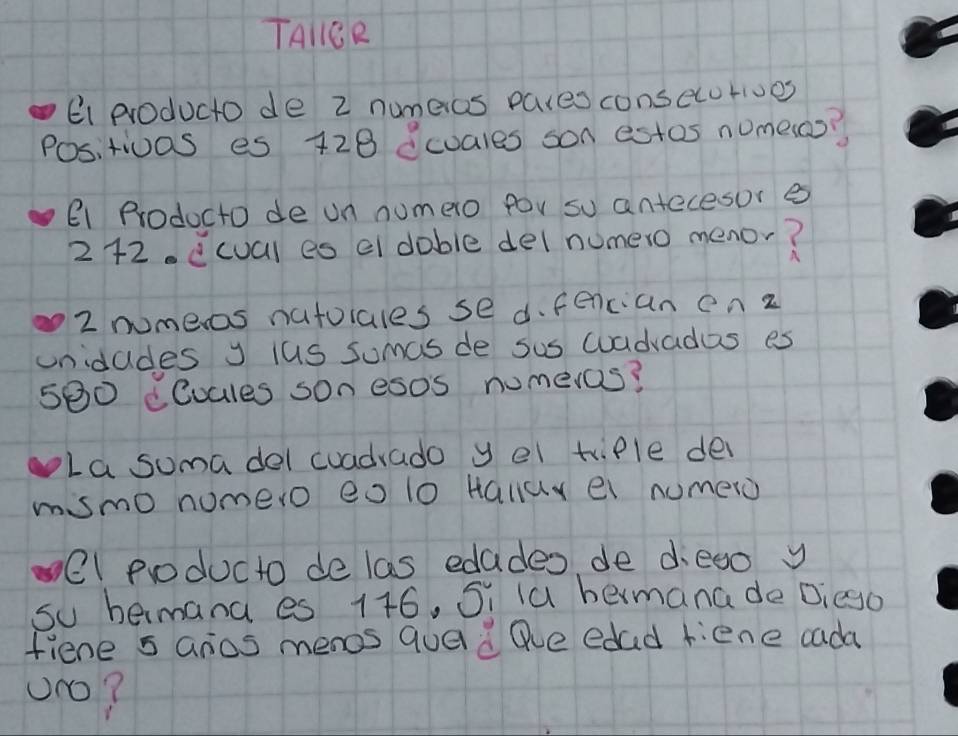 TAllER
El producto de 2 numeros pares consecutivos
Positivos es 728 ¿cuales son estos numeros?
El Producto de un numero por su antecesor es
272. ¿cual es el doble del numero menor?
2 numeros naturales se difencian en 2
unidades y las sumas de sus cuadrados es
580 ¿Cuales son esos numeros?
La suma del cuadrado y el triple del
mismo numero es 10 Hallar el numero
El producto de las edades de diego y
su hermana es 176. Si la hermana de Diego
tiene 5 años menos que ¿Que edad tiene cada
uno?